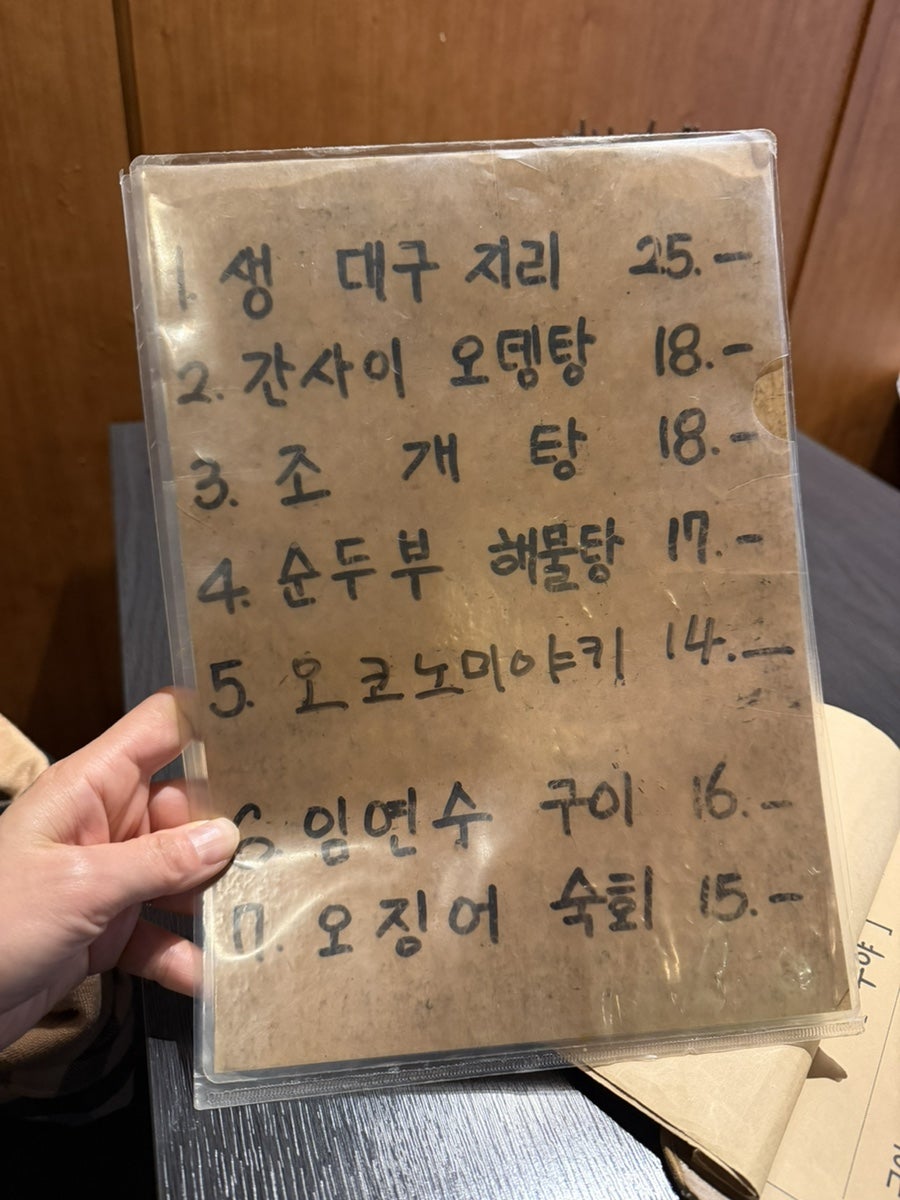 1. 생 대구 지리 25.-
2. 간사이 오뎅탕 18.-
3. 조 개 탕 18.-
4. 순두부 해물탕 17.-
5. 오코노미야키 14.-
6. 임연수 구이 16.-
7. 오징어 숙회 15.-